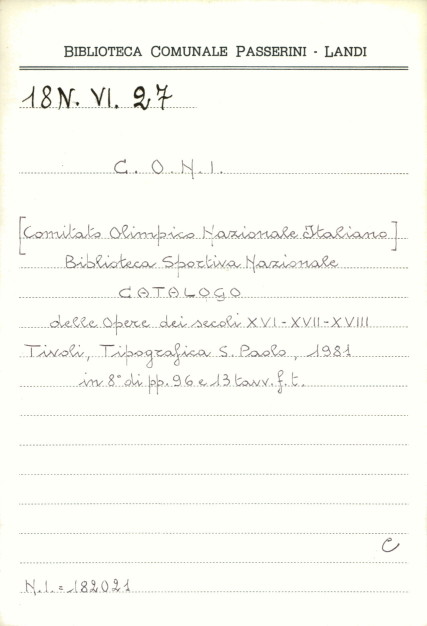 BIBLIOTECA COMUNALE PASSERINI - LANDI
18N. VI. 27
C. O. N. I.
[Comitato Olimpico Nazionale Italiano]
Biblioteca Sportiva Nazionale
CATALOGO
delle Opere dei secoli XVI-XVII-XVIII
Tivoli, Tipografica S. Paolo, 1981
in 8° di pp. 96 e 13 tavv. f. t.
C
N.I. = 182021